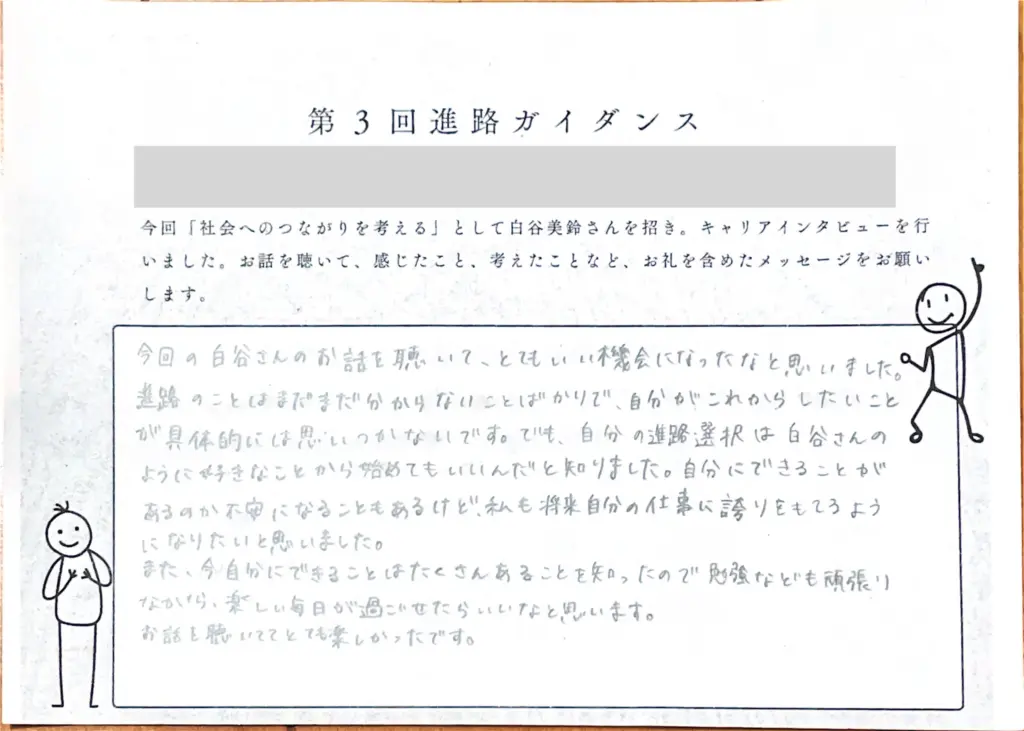 第3回進路ガイダンス
今回「社会へのつながりを考える」として白谷美鈴さんを招き。キャリアインタビューを行
いました。お話を聴いて、感じたこと、考えたことなど、お礼を含めたメッセージをお願い
します。
今回の白谷さんのお話を聴いて、とてもいい機会になったなと思いました。
進路のことはまだまだ分からないことばかりで、自分がこれからしたいこと
が具体的には思いつかないです。でも、自分の進路選択は白谷さんの
ように好きなことから始めてもいいんだと知りました。自分にできることが
あるのか不安になることもあるけど、私も将来自分の仕事に誇りをもてるよう
になりたいと思いました。
また、今自分にできることはたくさんあることを知ったので勉強なども頑張り
ながら、楽しい毎日が過ごせたらいいなと思います。
お話を聴いててとても楽しかったです。